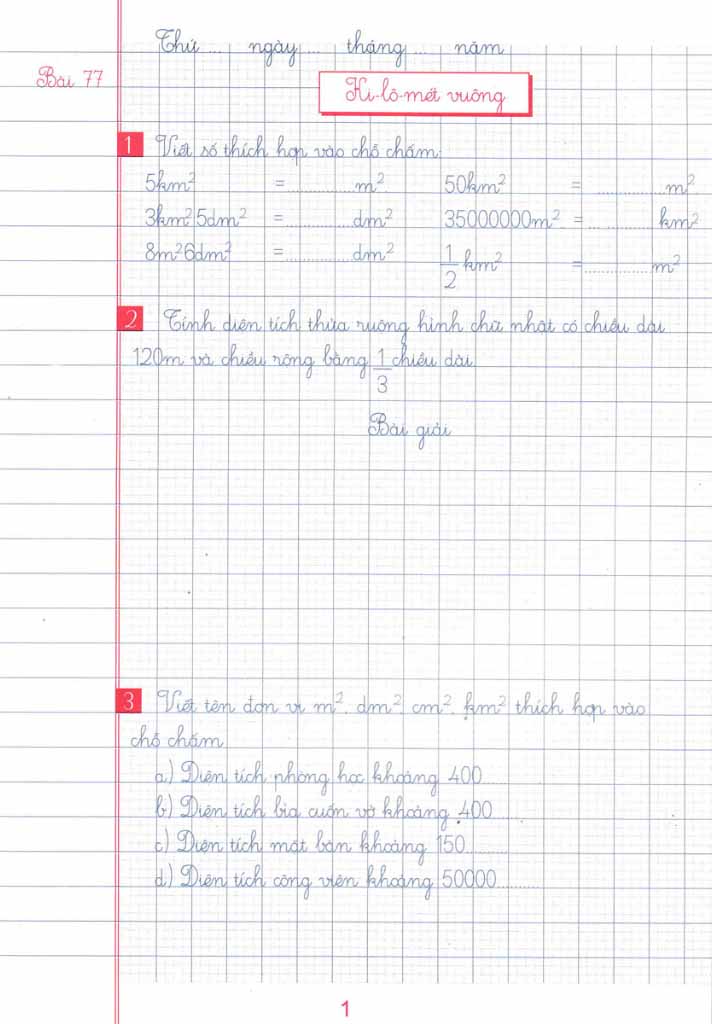 Thứ ... ngày ... tháng ... năm
Bài 77
Ki-lô-mét vuông
1 Viết số thích hợp vào chỗ chấm:
5km² = ............ m² 50km² = ............ m²
3km² 5dm² = ............ dm² 35000000m² = ............ km²
8m² 6dm² = ............ dm² 1/2 km² = ............ m²
2 Tính diện tích thửa ruộng hình chữ nhật có chiều dài
120m và chiều rộng bằng 1/3 chiều dài.
Bài giải
3 Viết tên đơn vị m², dm², cm², km² thích hợp vào
chỗ chấm
a) Diện tích phòng học khoảng 400.......
b) Diện tích bìa cuốn vở khoảng 400.......
c) Diện tích mặt bàn khoảng 150.......
d) Diện tích công viên khoảng 50000.......
1